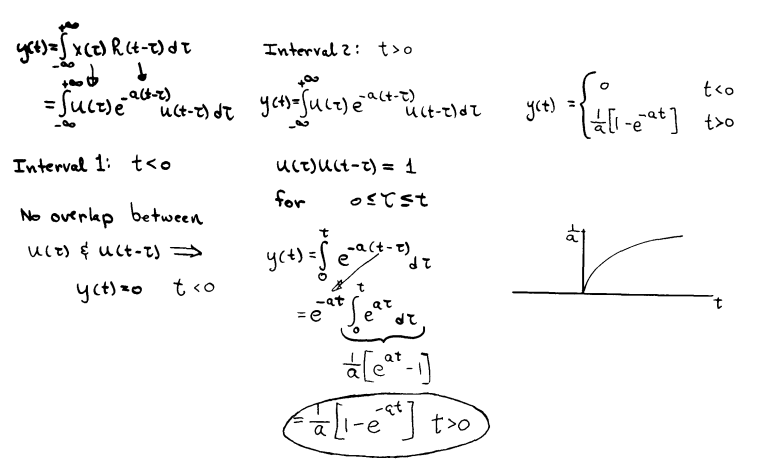 y(t)=∫_{-∞}^{+∞} x(τ) h(t-τ) dτ
= ∫_{-∞}^{+∞} u(τ) e^{-a(t-τ)} u(t-τ) dτ
Interval 1: t<0
No overlap between
u(τ) & u(t-τ) ⟹
y(t)=0 t<0
Interval 2: t>0
y(t)=∫_{-∞}^{+∞} u(τ) e^{-a(t-τ)} u(t-τ) dτ
u(τ)u(t-τ) = 1
for 0≤τ≤t
y(t)=∫_{0}^{t} e^{-a(t-τ)} dτ
= e^{-at} ∫_{0}^{t} e^{aτ} dτ
1/a [e^{at} -1]
= 1/a [1-e^{-at}] t>0
y(t) = { 0 t<0
1/a [1-e^{-at}] t>0
1/a
t